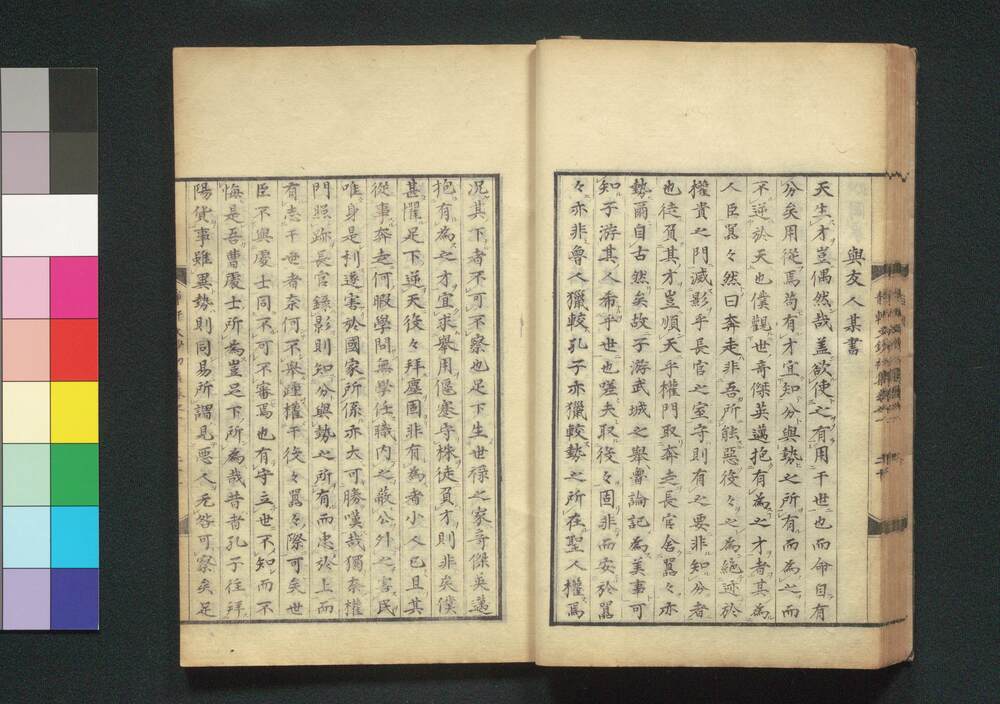 與友人某書
天生才豈偶然哉盖欲使之有用于世也而命自有
分矣用從焉苟有才宜知分與勢之所有而為之而
不逆於天也僕觀世奇傑英邁抱有為之才者其為
人臣嚣々然曰奔走非吾所能惡役々之為絕迹於
權貴之門滅影乎長官之室守則有之要非知分者
也徒負其才豈順天乎權門取奔走長官舍嚣々亦
勢爾自古然矣故子游武城之舉魯論記為美事可
知子游其人希乎世也嗟夫取役々固非而安於嚣
々亦非魯人獵較孔子亦獵較勢之所在聖人權焉
况其下者不可不察也足下生世禄之家奇傑英邁
抱有為之才宜求舉用偃蹇守株徒負才則非矣僕
甚懼足下逆天役々拜塵固非有為者小人已且其
從事奔走何暇學問無學任職内之敵公外之害民
唯身是利遂害於國家所係亦大可勝嘆哉獨奈權
門照跡長官錄影則知分與勢之所有而患於上而
有志于世者奈何不舉踵權干役々嚣々際可矣世
臣不與處士同不可不審焉也有守立世不知而不
悔是吾曹處士所為豈足下所為哉昔者孔子往拜
陽貨事雖異勢則同易所謂見惡人无咎可察矣足